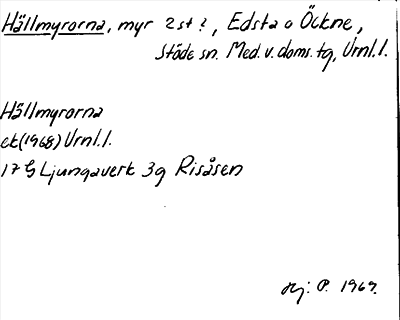 Hällmyrorna, myr 2 st ?, Edsta o Öckne,
Stöde sn. Med. v. doms. tg, Urnl. l.
Hällmyrorna
ek (1968) Urnl. l.
17 G Ljungaverk 3g Risåsen
Hj: P. 1969.